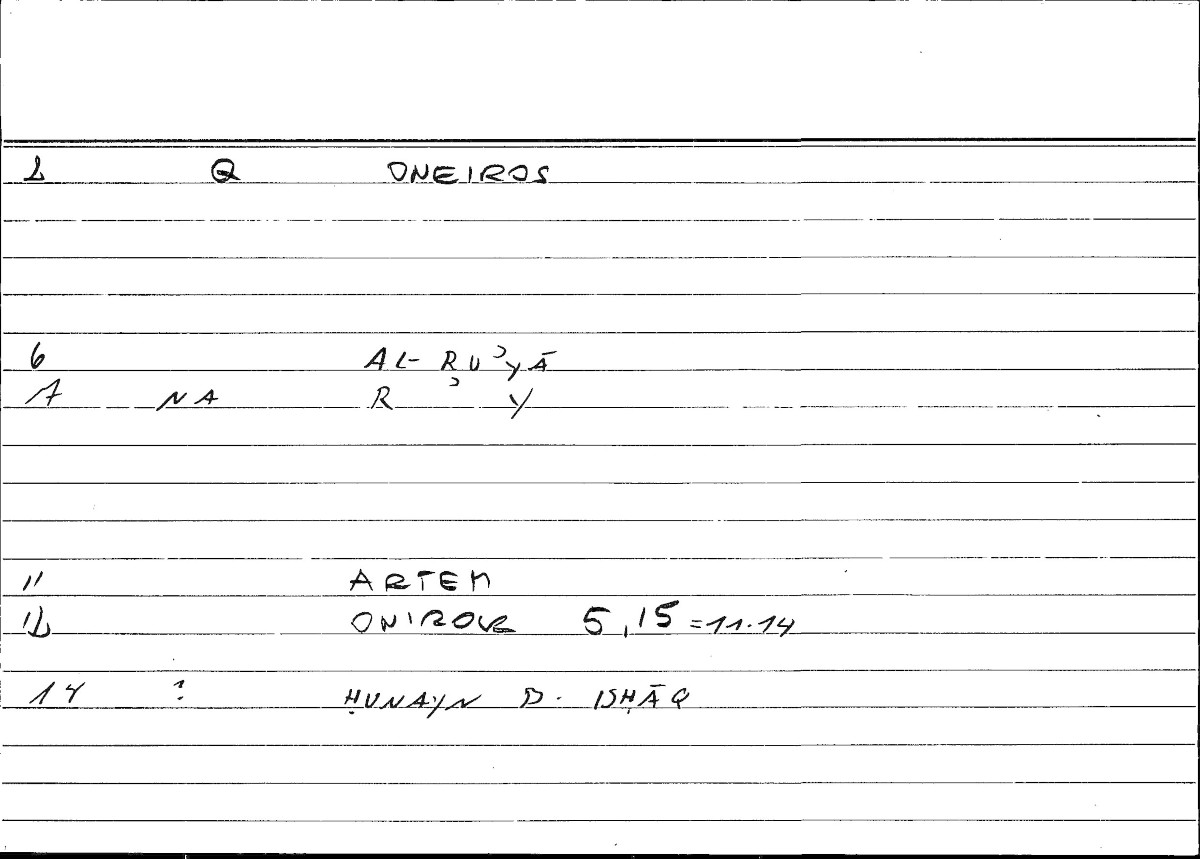 1 Q ONEIROS
6 AL-RUʾYĀ
7 NA RʾY
11 ARTEM
12 ONIROCR 5,15 = 11.14
14 ? ḤUNAYN B. ISḤĀQ